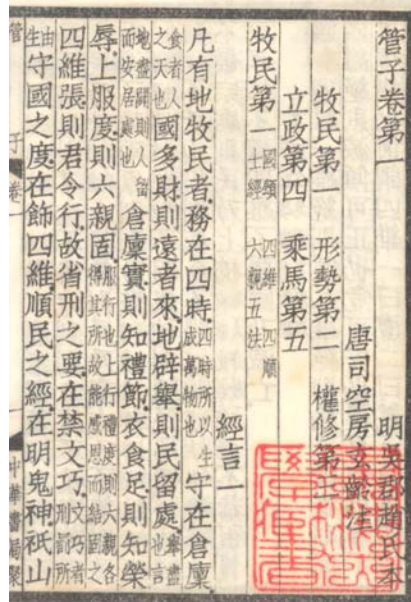 管子卷第一 明吳郡趙氏本
唐司空房玄齡注
牧民第一 形勢第二 權修第三
立政第四 乘馬第五
牧民第一 國頌 四維 四順 士經 六親五法 經言一
凡有地牧民者務在四時四時所以生成萬物也守在倉廩
食者人之天也國多財則遠者來地辟舉則民留處舉盡也言
地盡闢則人留而安居處也倉廩實則知禮節衣食足則知榮
辱上服度則六親固服行也上行禮度則六親各得其所故能感恩而結固之
四維張則君令行故省刑之要在禁文巧文巧者刑罰所
由生守國之度在飾四維順民之經在明鬼神祇山
管子 卷一 中華書局聚